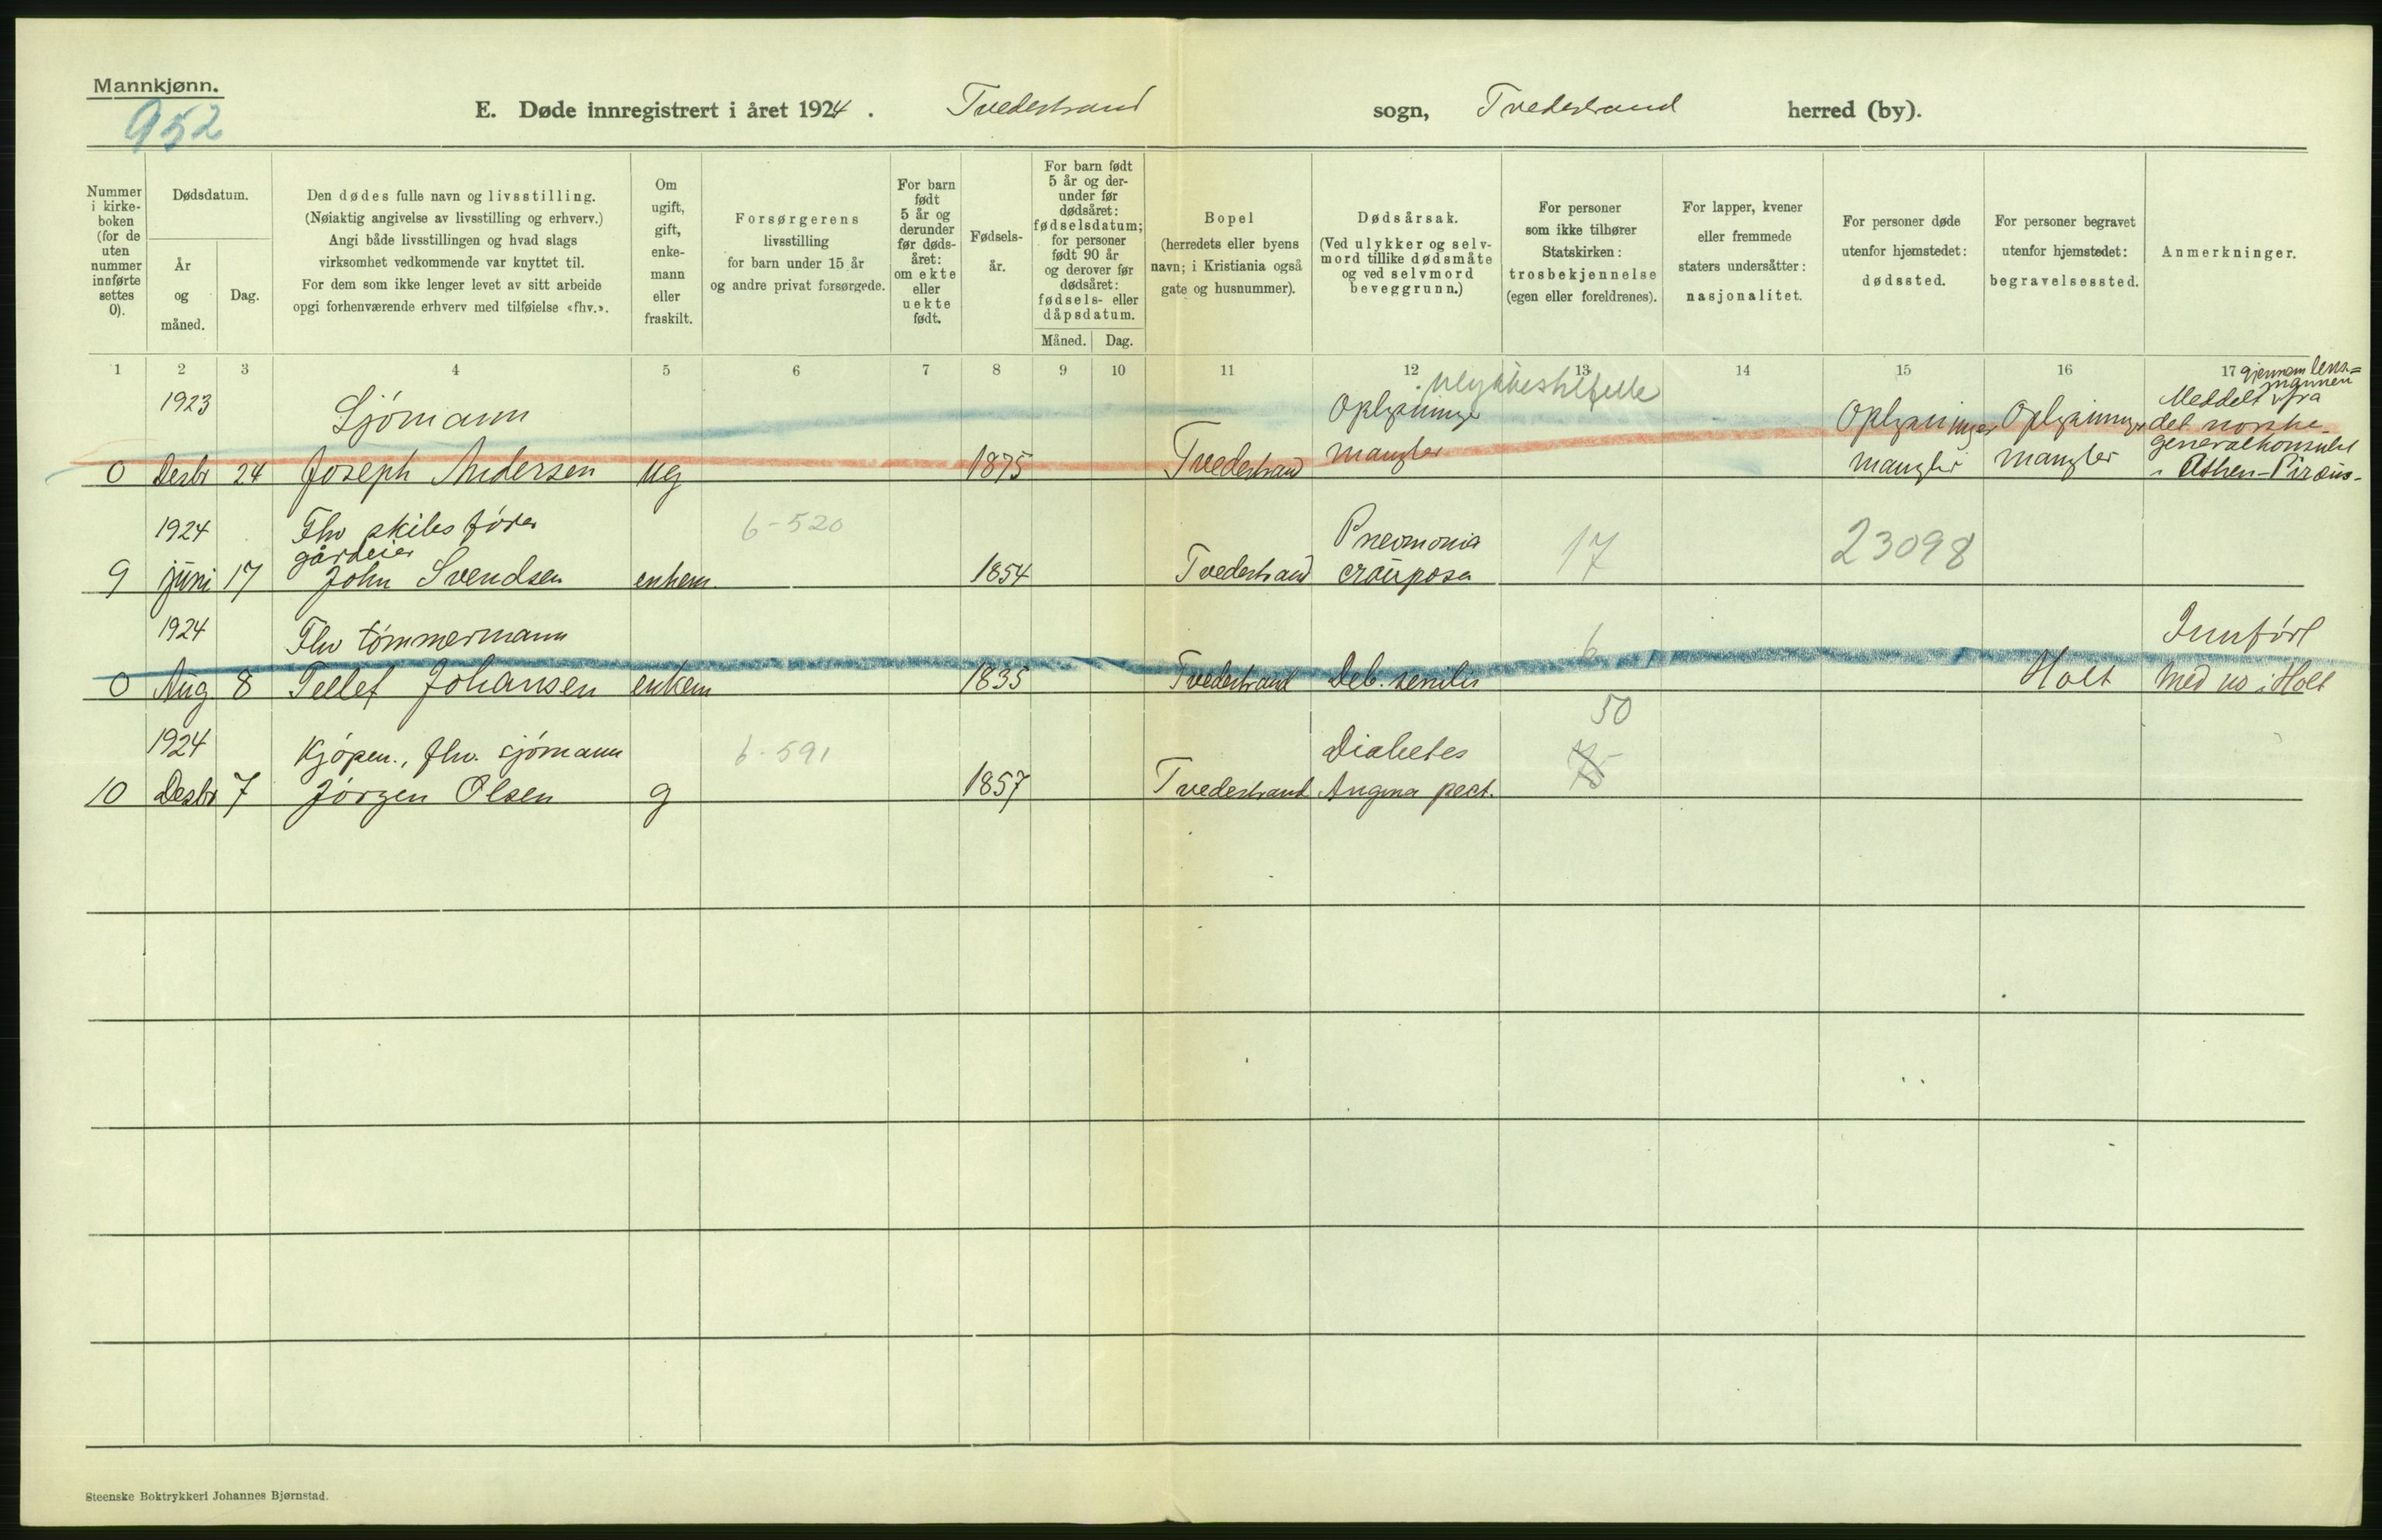 Mannkjønn.
952
E. Døde innregistrert i året 1924. Tvedestrand sogn, Tvedestrand herred (by).
Nummer i kirke- boken (for de uten nummer innførte settes 0).
Dødsdatum.
År og måned.
Dag.
Den dødes fulle navn og livsstilling.
(Nøiaktig angivelse av livsstilling og erhverv.)
Angi både livsstillingen og hvad slags
virksomhet vedkommende var knyttet til.
For dem som ikke lenger levet av sitt arbeide
opgi forhenværende erhverv med tilføielse «fhv.».
Om ugift, gift, enke- mann eller fraskilt.
Forsørgerens
livsstilling
for barn under 15 år
og andre privat forsørgede.
For barn født 5 år og derunder før døds- året: om ekte eller uekte født.
Fødsels- år.
For barn født 5 år og der- under før dødsåret: fødselsdatum; for personer født 90 år og derover før dødsåret: fødsels- eller dåpsdatum.
Måned.
Dag.
Bopel
(herredets eller byens
navn; i Kristiania også
gate og husnummer).
Dødsårsak.
(Ved ulykker og selv-
mord tillike dødsmåte
og ved selvmord
beveggrunn.)
For personer
som ikke tilhører
Statskirken:
trosbekjennelse
(egen eller foreldrenes).
For lapper, kvener
eller fremmede
staters undersåtter:
nasjonalitet.
For personer døde
utenfor hjemstedet:
dødssted.
For personer begravet
utenfor hjemstedet:
begravelsessted.
Anmerkninger.
1 2 3 4 5 6 7 8 9 10 11 12 13 14 15 16 17
1923 Sjømann Oplysninger ulykkestilfelle Oplysninger Oplysninger
0 Desbr 24 Joseph Andersen ug 1875 Tvedestrand mangler mangler mangler
gjennem lens=
mannen
Meddelt fra
det norske
generalkonsulat
i Athen-Piræus.
1924 Fhv skibsfører 6-520 Pneomonia 17 23098
gårdeier
9 juni 17 John Svendsen enkem. 1854 Tvedestrand crouposa
1924 Fhv tømmermann 6 Innført
0 Aug. 8 Tellef Johansen enkem 1835 Tvedestrand Deb. senilis Holt med no i Holt
50
1924 Kjøpm., fhv. sjømann 6-591 Diabetes
10 Desbr 7 Jørgen Olsen g 1857 Tvedestrand Angina pect.
Steenske Boktrykkeri Johannes Bjørnstad.